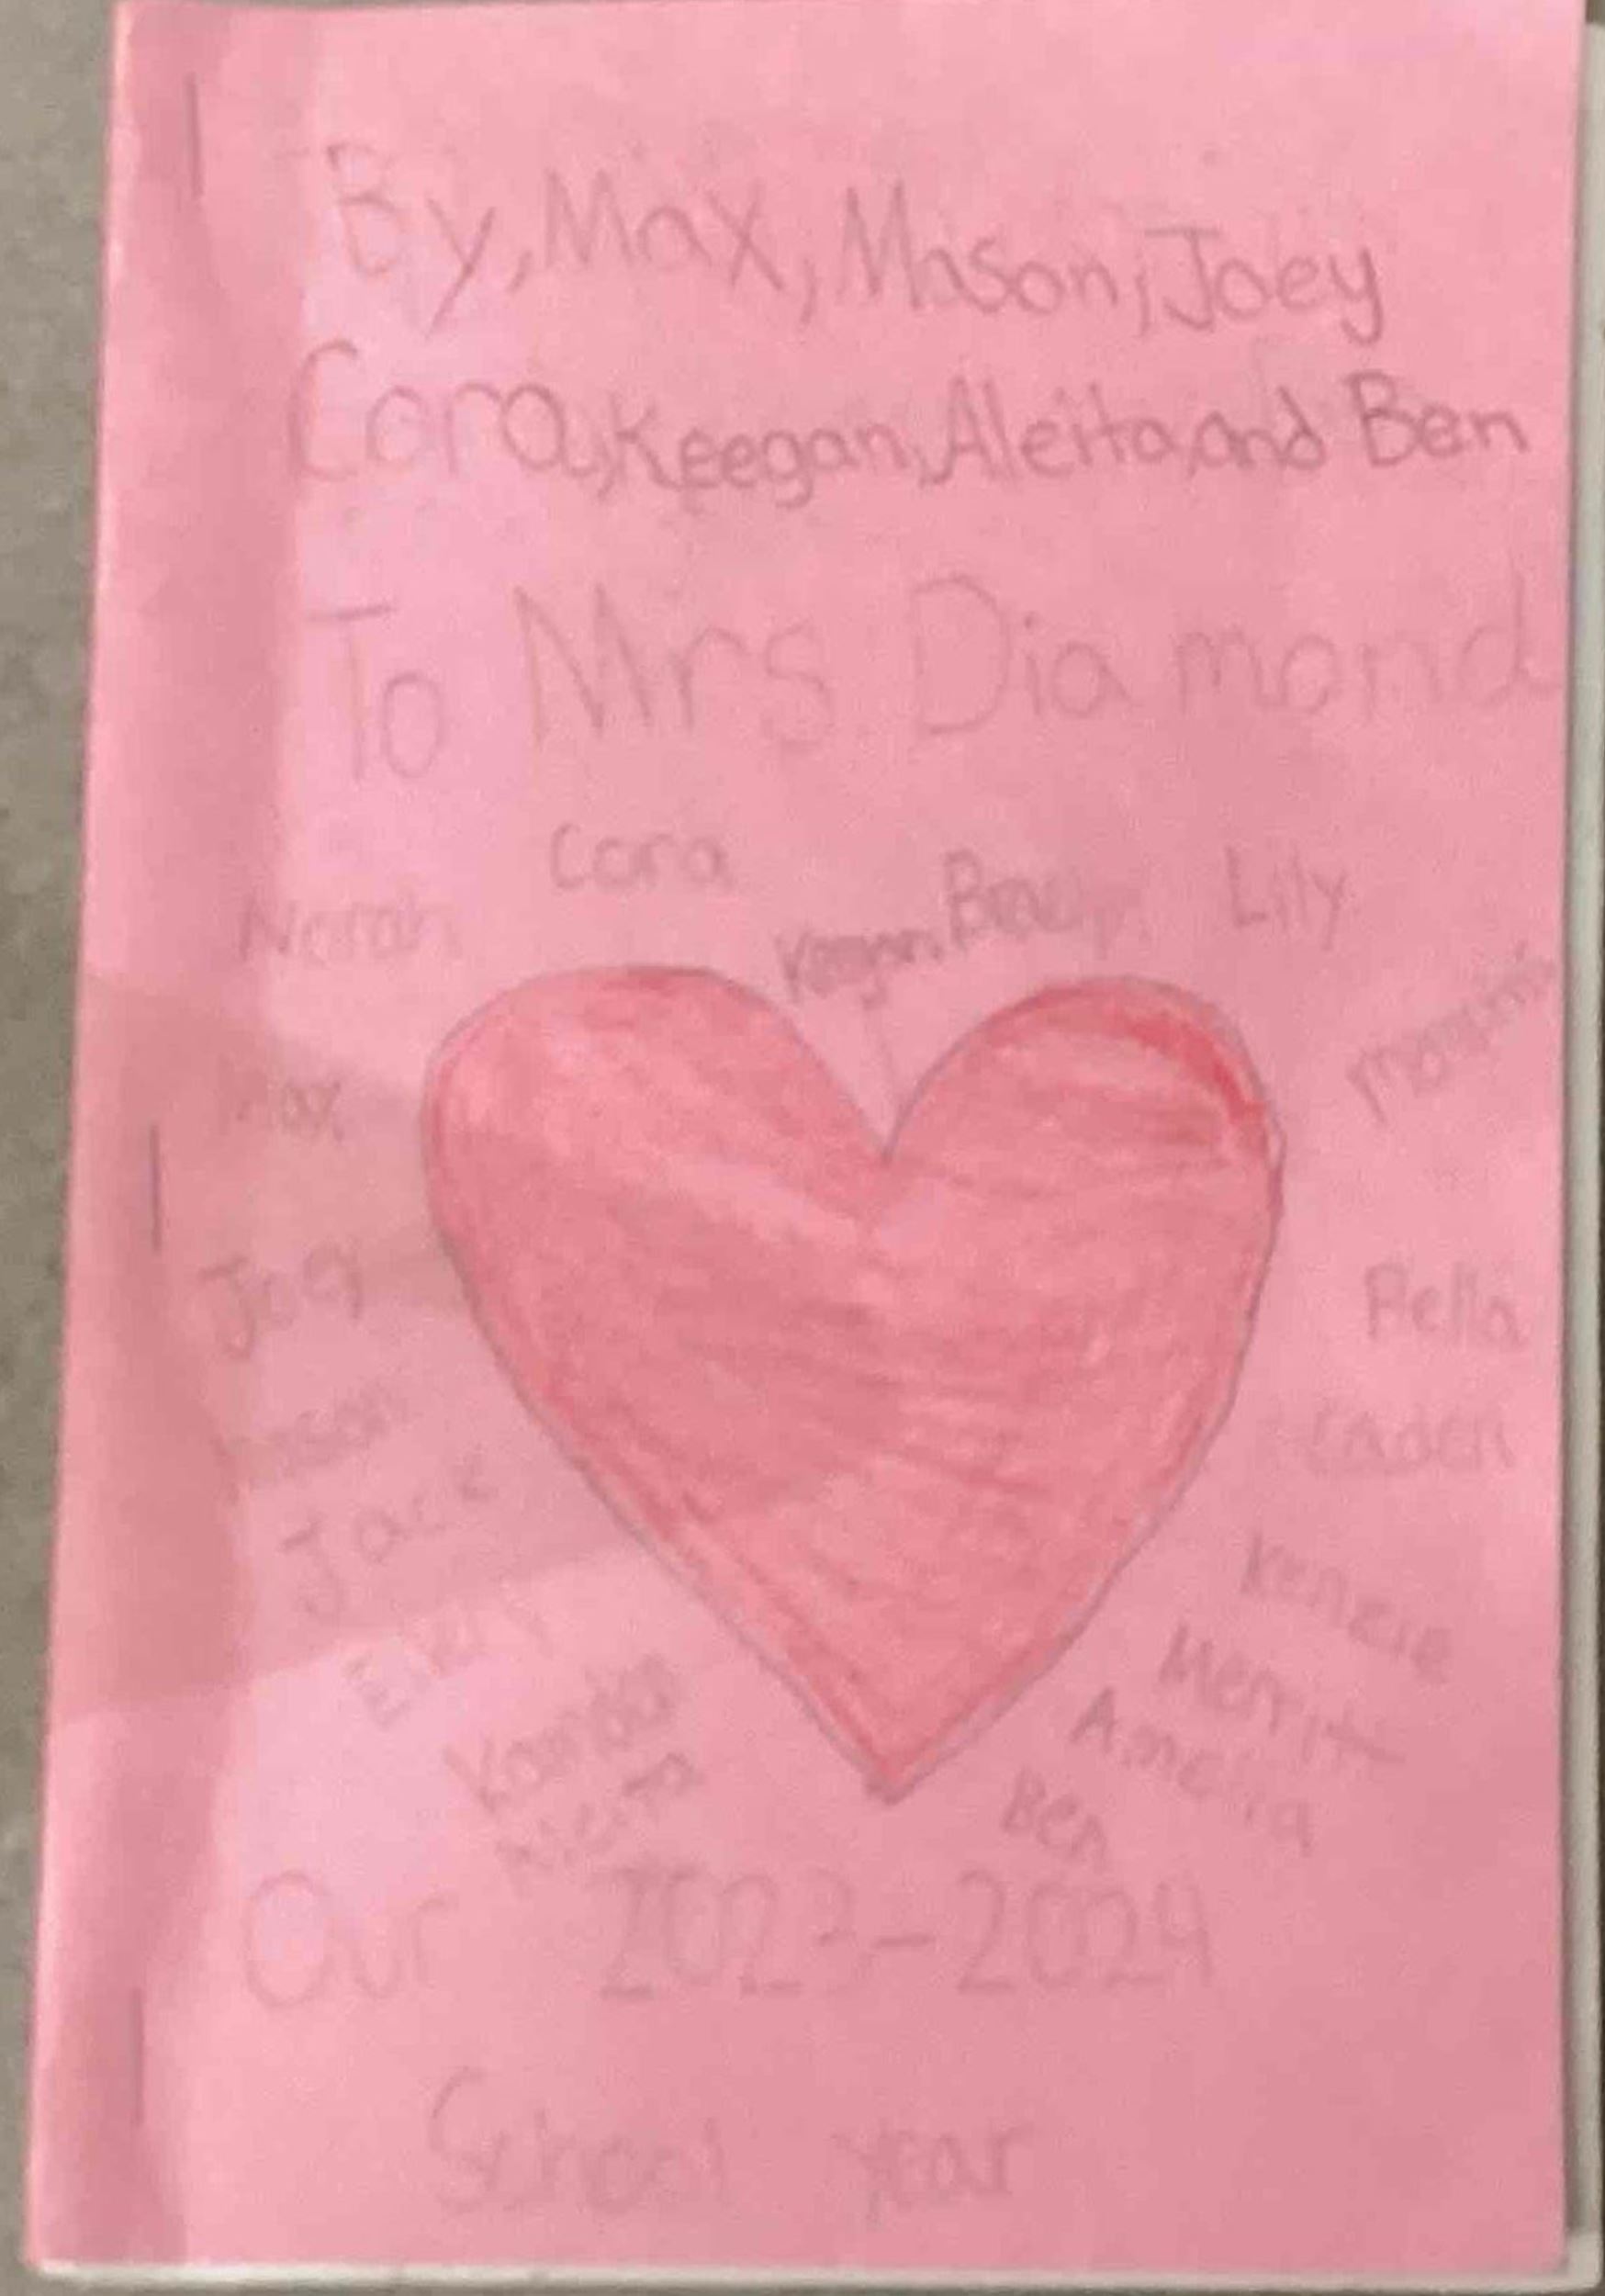 By, Max, Mason, Joey
Cora, Keegan, Aleita, and Ben
To Mrs Diamond
Cora
Lily
Norah
Keegan
Max
Joey
Bella
Mason
Caden
Jack
Kenzie
Merritt
Amelia
Aleita
Ben
Our 2023-2024
School year